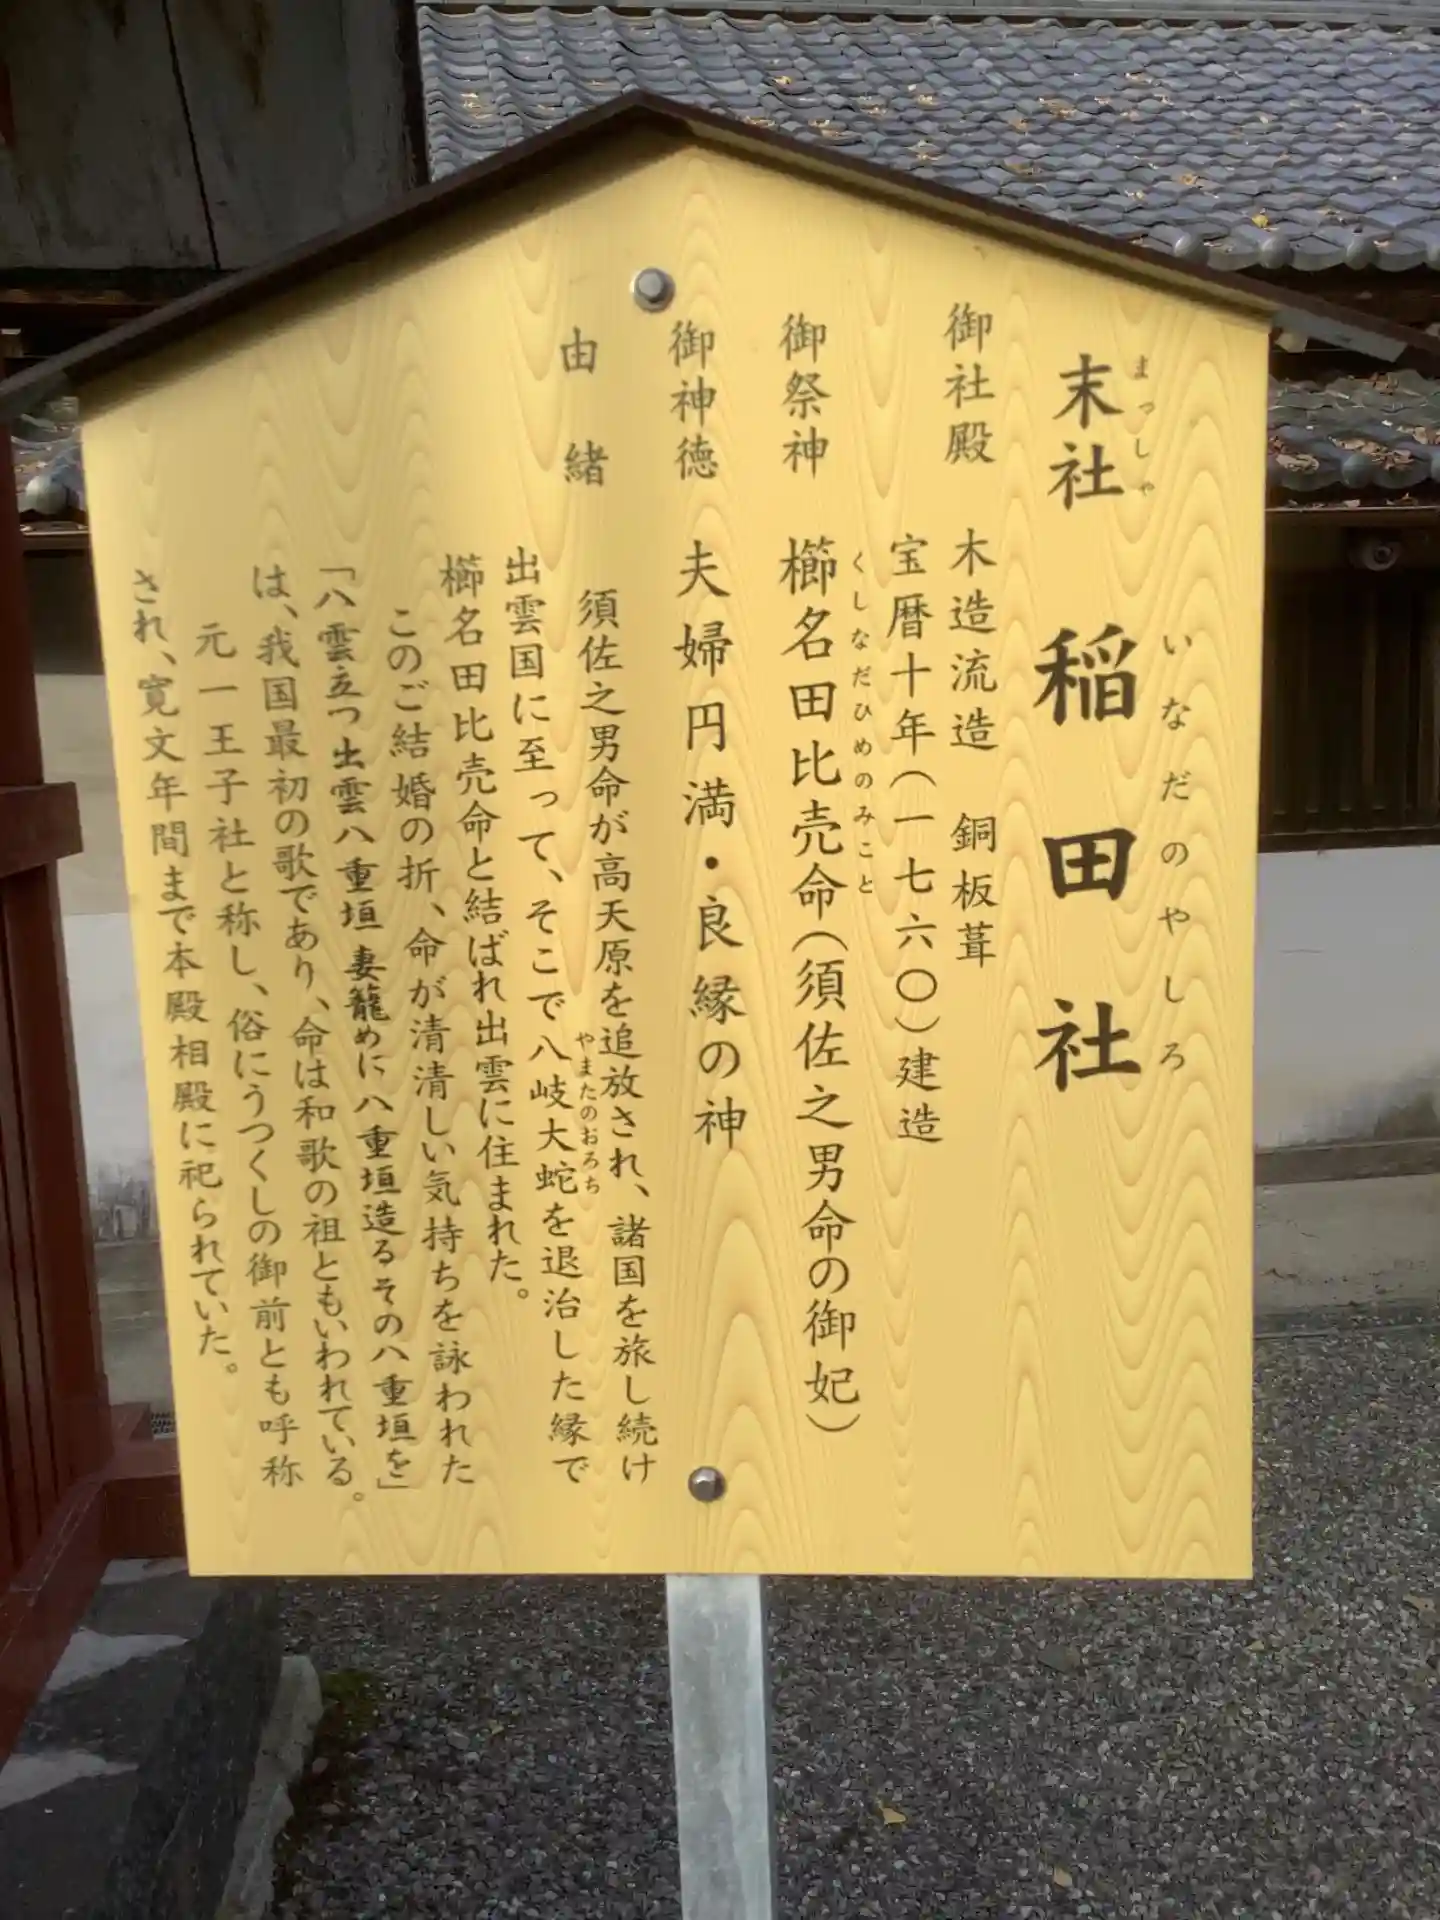 末社 稲田社
まっしゃ いなだのやしろ
御社殿 木造流造 銅板葺
宝暦十年(一七六〇)建造
御祭神 櫛名田比売命(須佐之男命の御妃)
くしなだひめのみこと
御神徳 夫婦円満・良縁の神
由緒
須佐之男命が高天原を追放され、諸国を旅し続け
出雲国に至って、そこで八岐大蛇を退治した縁で
やまたのおろち
櫛名田比売命と結ばれ出雲に住まれた。
このご結婚の折、命が清清しい気持ちを詠われた
「八雲立つ出雲八重垣 妻籠めに八重垣造るその八重垣を」
は、我国最初の歌であり、命は和歌の祖ともいわれている。
元一王子社と称し、俗にうつくしの御前とも呼称
され、寛文年間まで本殿相殿に祀られていた。